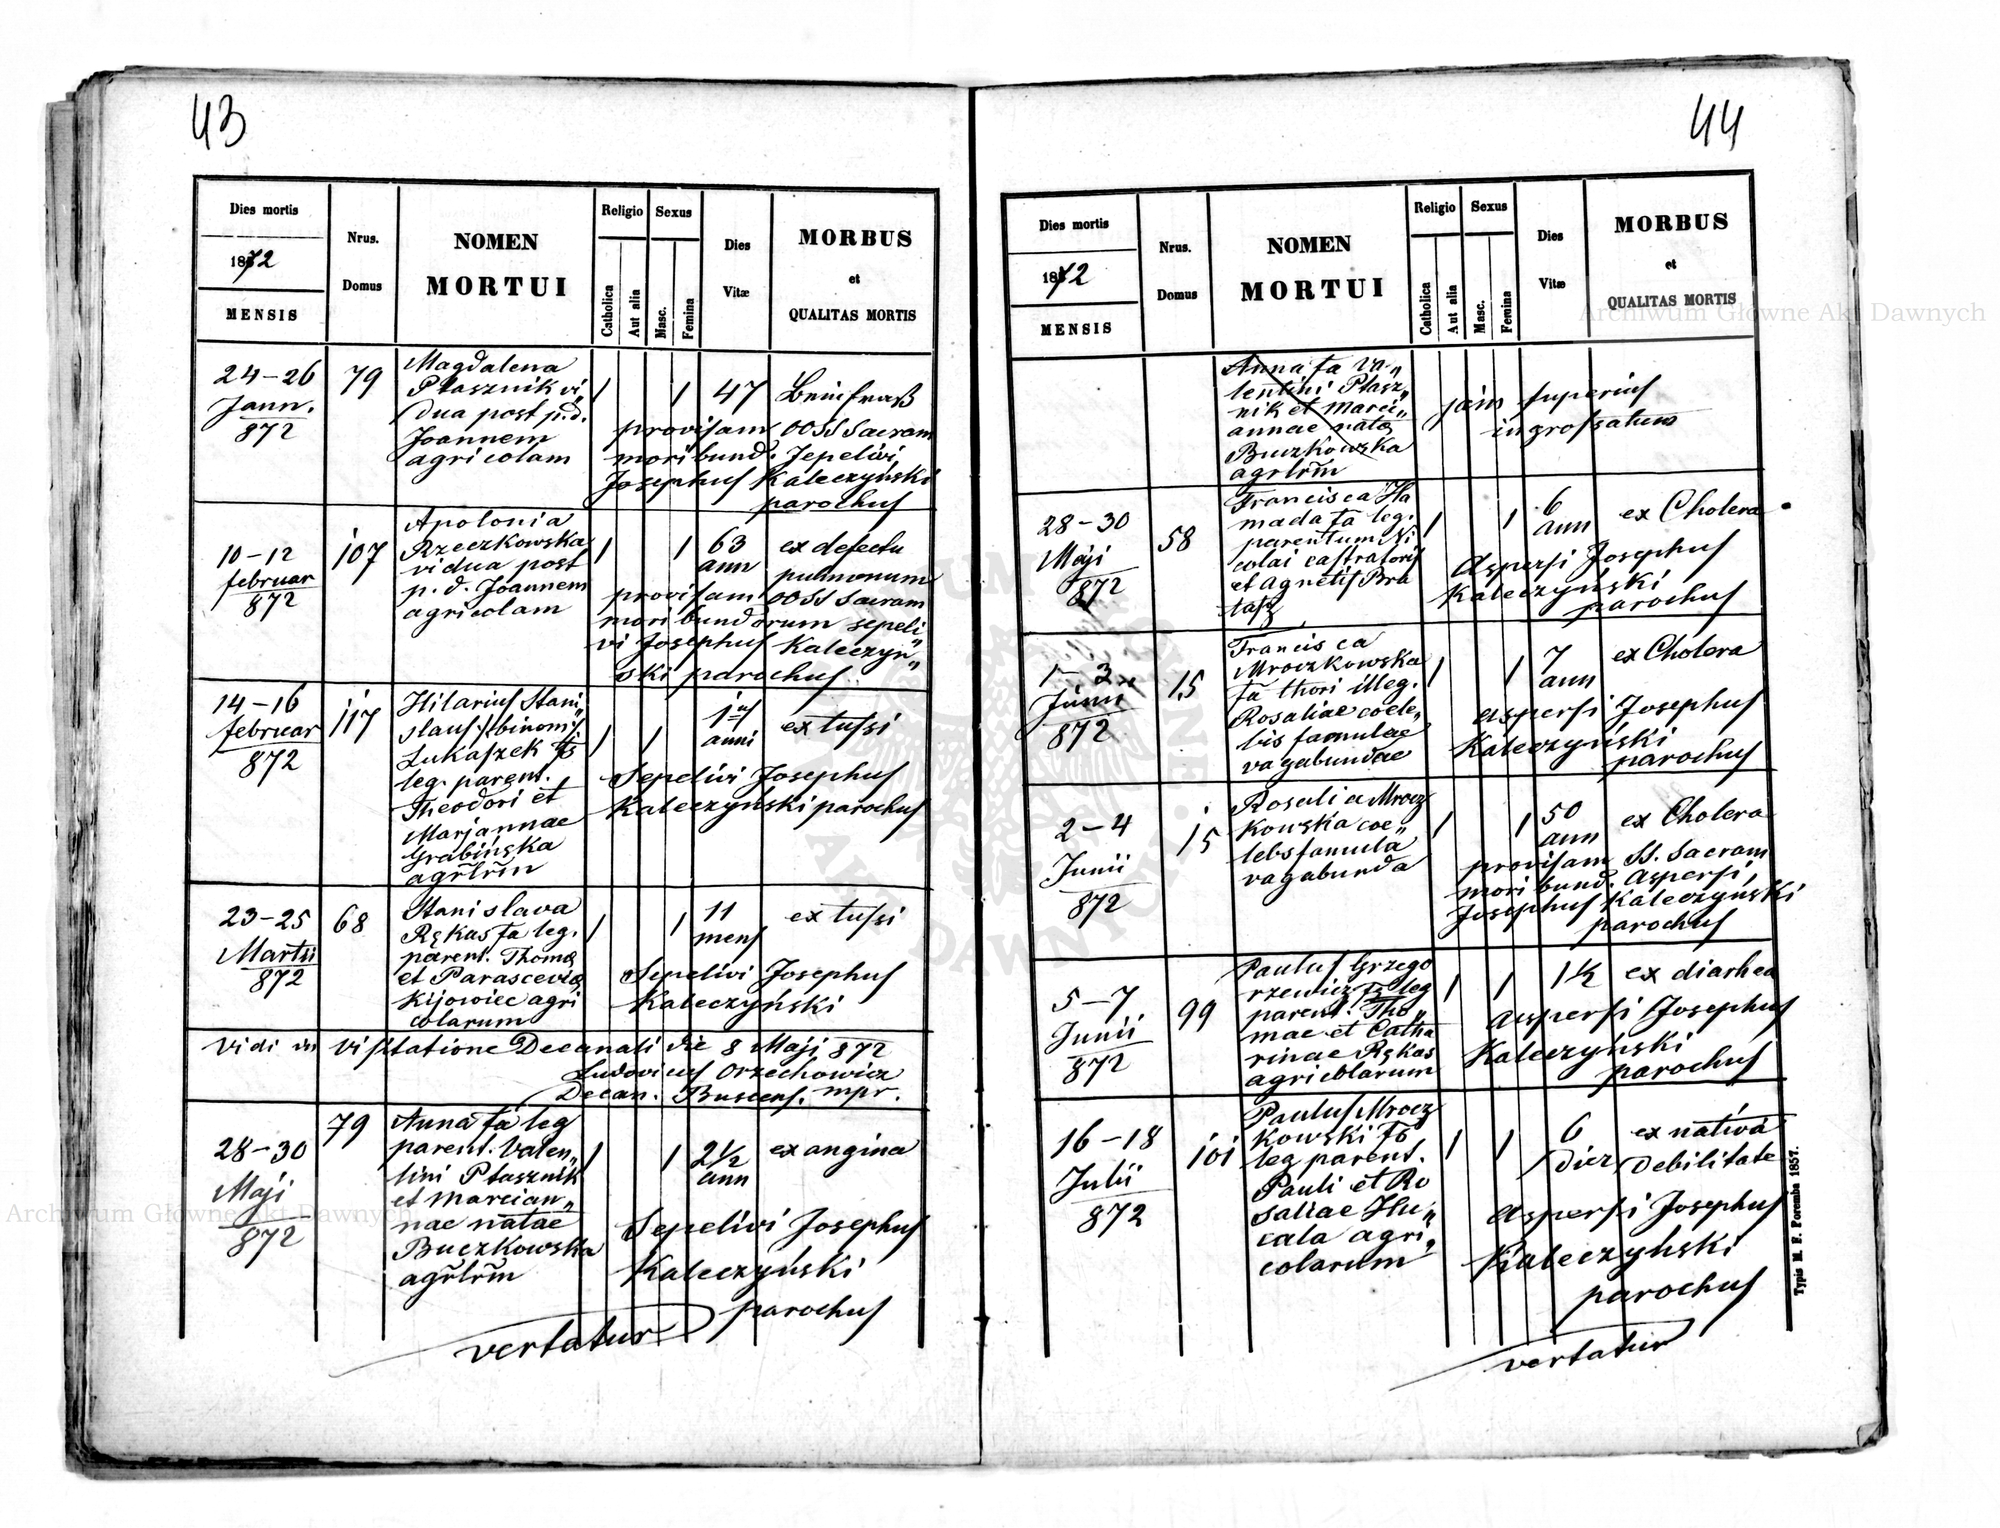 43
Dies mortis
1872
MENSIS
Nrus.
Domus
NOMEN
MORTUI
Religio
Catholica
Aut alia
Sexus
Masc.
Femina
Dies
Vitæ
MORBUS
et
QUALITAS MORTIS
24-26
Jann.
872
79
Magdalena
Ptasznik vi„
dua post p.d.
Joannem
agricolam
1
1
47
Beinfraß
provisam OOSS Sacram
moribund. Sepelivi
Josephus Kaleczyński
parochus
10-12
februar
872
107
Apolonia
Rzeczkowska
vidua post
p. d. Joannem
agricolam
1
1
63
ann
ex defectu
pulmonum
provisam OOSS Sacram
moribundorum sepeli„
vi Josephus Kaleczyń„
ski parochus
14-16
februar
872
117
Hilarius Stani„
slaus /:binom:/
Lukaszek fs
leg. parent.
Theodori et
Marjannae
Grabińska
agrlrm
1
1
1us
anni
ex tussi
Sepelivi Josephus
Kaleczyński parochus
23-25
Martii
872
68
Stanislava
Rękas fa leg.
parent. Thomæ
et Parasceviæ
Kijowiec agri
colarum
1
1
11
mens
ex tussi
Sepelivi Josephus
Kaleczyński
Vidi in visitatione Decanali die 8 Maji 872
Ludovicus Orzechowicz
Decan. Buscens. mpr.
28-30
Maji
872
79
Anna fa leg
parent. Valen„
tini Ptasznik
et Marcian„
nae natae
Buczkowska
agrlrm
1
1
2½
ann
ex angina
Sepelivi Josephus
Kaleczyński
parochus
vertatur
44
Dies mortis
1872
MENSIS
Nrus.
Domus
NOMEN
MORTUI
Religio
Catholica
Aut alia
Sexus
Masc.
Femina
Dies
Vitæ
MORBUS
et
QUALITAS MORTIS
Anna fa Va„
lentini Ptasz„
nik et Marci„
annae natæ
Buczkowska
agrlrm
jam superius
ingrossatum
28-30
Maji
872
58
Francisca Ha
mada fa leg.
parentum Ni
colai castratoris
et Agnetis Bra
tasz
1
1
6
ann
ex Cholera
aspersi Josephus
Kaleczyński
parochus
1-3
Junii
872
15
Francisca
Mroczkowska
fa thori illeg.
Rosaliae coele„
bis famulae
vagabundae
1
1
7
ann
ex Cholera
aspersi Josephus
Kaleczyński
parochus
2-4
Junii
872
15
Rosalia Mrocz
kowska coe„
lebs famula
vagabunda
1
1
50
ann
ex Cholera
provisam SS. Sacram
moribund. aspersi
Josephus Kaleczyński
parochus
5-7
Junii
872
99
Paulus Grzego
rzewicz fs leg
parent. Tho„
mae et Catha
rinae Rękas
agricolarum
1
1
1½
ex diarhea
aspersi Josephus
Kaleczyński
parochus
16-18
Julii
872
101
Paulus Mrocz
kowski fs
leg parent.
Pauli et Ro
saliae Hu„
cala agri„
colarum
1
1
6
dies
ex nativa
debilitate
aspersi Josephus
Kaleczyński
parochus
vertatur
Typis M. F. Poremba 1857.
Archiwum Główne Akt Dawnych
Archiwum Główne Akt Dawnych